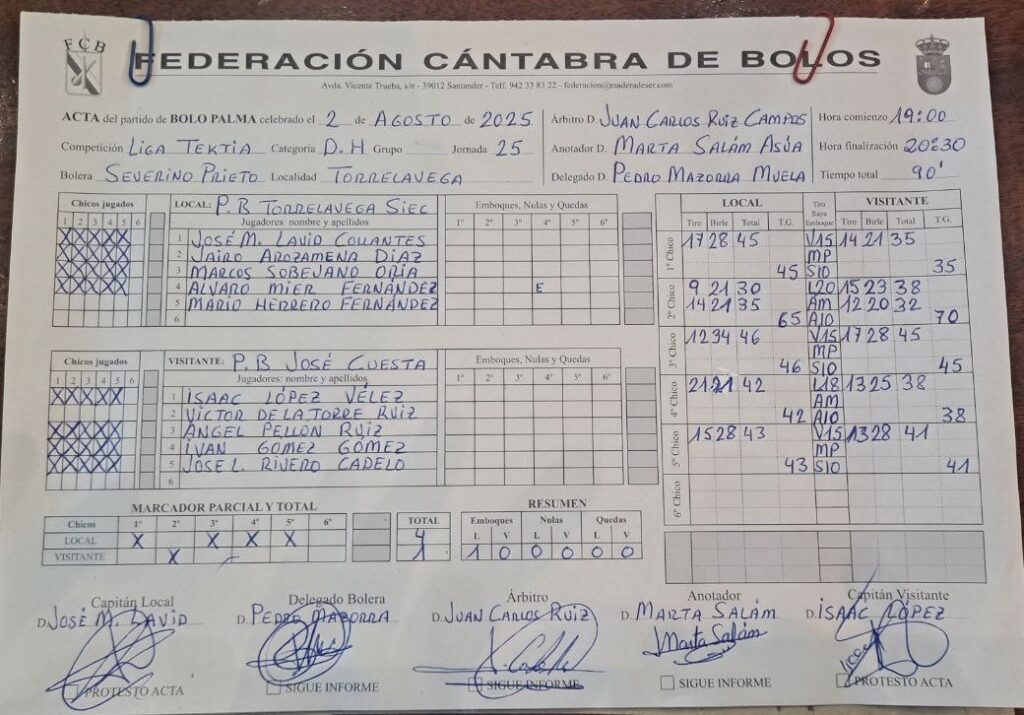 FCB
FEDERACIÓN CÁNTABRA DE BOLOS
Avda. Vicente Trueba, s/n - 39012 Santander - Telf. 942 33 85 22 - federacion@maderadeser.com
ACTA del partido de BOLO PALMA celebrado el 2 de AGOSTO de 2025
Competición LIGA TEKTIA Categoría D.H Grupo Jornada 25
Bolera SEVERINO PRIETO Localidad TORRELAVEGA
Árbitro D. JUAN CARLOS RUIZ CAMPOS
Anotador D. MARTA SALÁM ASÚA
Delegado D. PEDRO MAZORRA MUELA
Hora comienzo 19:00
Hora finalización 20:30
Tiempo total 90'
Chicos jugados
1 2 3 4 5 6
LOCAL: P.B TORRELAVEGA SIEC
Jugadores: nombre y apellidos
Emboques, Nulas y Quedas
1º 2º 3º 4º 5º 6º
1 JOSÉ M. LAVID COLLANTES
2 JAIRO AROZAMENA DÍAZ
3 MARCOS SOBEJANO ORIA
4 ALVARO MIER FERNÁNDEZ E
5 MARIO HERRERO FERNÁNDEZ
6
Chicos jugados
1 2 3 4 5 6
VISITANTE: P.B JOSÉ CUESTA
Jugadores: nombre y apellidos
Emboques, Nulas y Quedas
1º 2º 3º 4º 5º 6º
1 ISAAC LÓPEZ VÉLEZ
2 VICTOR DE LA TORRE RUIZ
3 ÁNGEL PELLÓN RUIZ
4 IVAN GOMEZ GÓMEZ
5 JOSE L. RIVERO CADELO
6
LOCAL Tiro Raya Emboque VISITANTE
Tiro Birle Total T.G. Tiro Birle Total T.G.
1º Chico 17 28 45 V15 14 21 35
MP
45 S10 35
2º Chico 9 21 30 L20 15 23 38
14 21 35 AM 12 20 32
65 A10 70
3º Chico 12 34 46 V15 17 28 45
MP
46 S10 45
4º Chico 21 21 42 L18 13 25 38
AM
42 A10 38
5º Chico 15 28 43 V15 13 28 41
MP
43 S10 41
6º Chico
MARCADOR PARCIAL Y TOTAL
Chicos 1º 2º 3º 4º 5º 6º TOTAL
LOCAL X X X X 4
VISITANTE X 1
RESUMEN
Emboques Nulas Quedas
L V L V L V
1 0 0 0 0 0
Capitán Local
D. JOSÉ M. LAVID
PROTESTO ACTA
Delegado Bolera
D. PEDRO MAZORRA
SIGUE INFORME
Árbitro
D. JUAN CARLOS RUIZ
SIGUE INFORME
Anotador
D. MARTA SALÁM
Marta Salám
SIGUE INFORME
Capitán Visitante
D. ISAAC LÓPEZ
PROTESTO ACTA